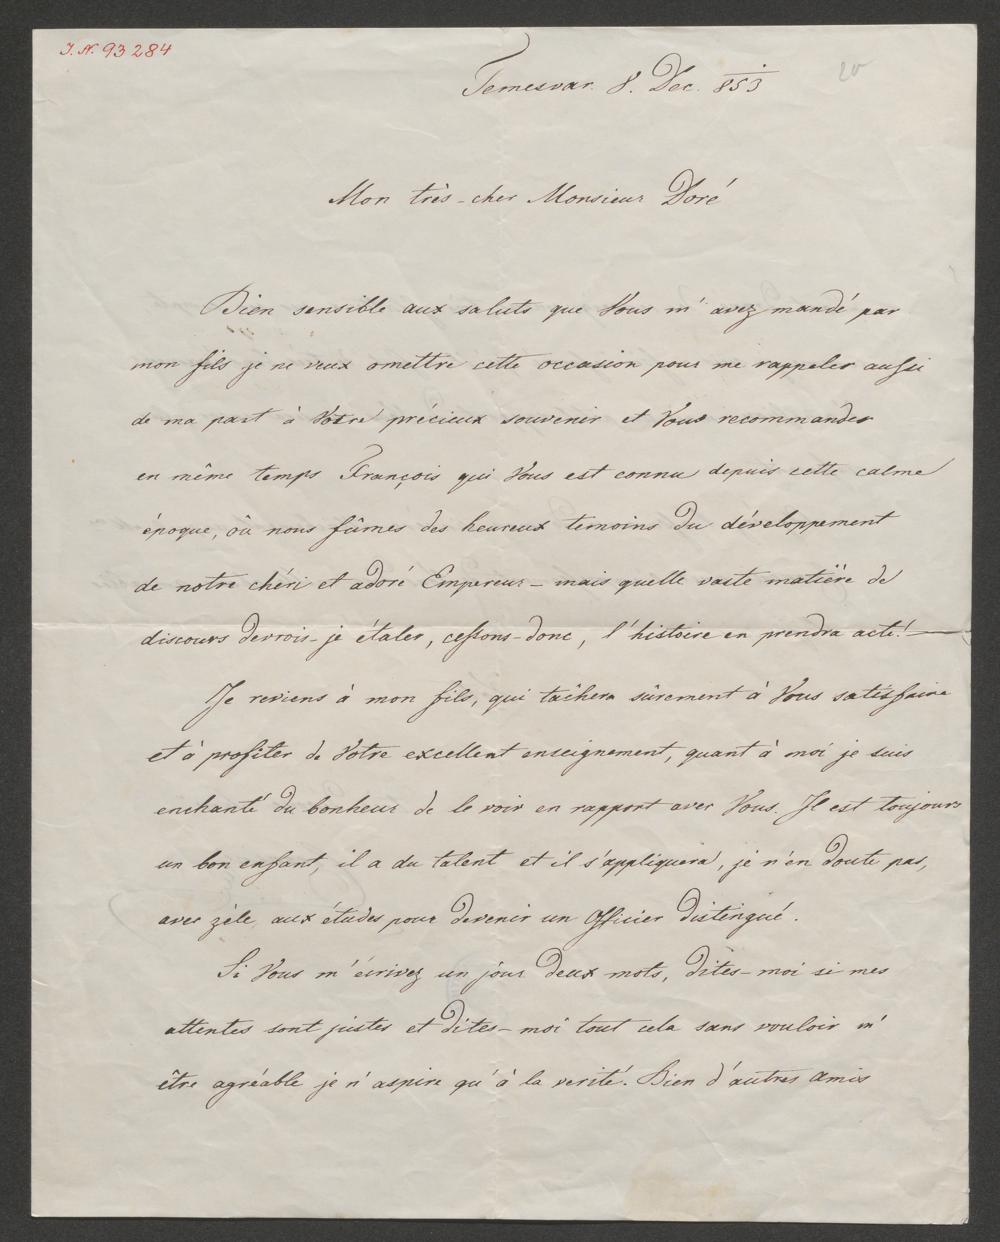 J. N. 93284
Temesvar. 8. Dec. 853
Mon très-cher Monsieur Doré
Bien sensible aux saluts que Vous m'avez mandé par
mon fils je ne veux omettre cette occasion pour me rappeler aussi
de ma part à Votre précieux souvenir et Vous recommander
en même temps François qui Vous est connu depuis cette calme
époque, où nous fûmes des heureux temoins du développement
de notre chéri et adoré Empereur – mais quelle vaste matière de
discours devrois-je étaler, cessons-donc, l'histoire en prendra acte! —
Je reviens à mon fils, qui tâchera sûrement à Vous satisfaire
et à profiter de Votre excellent enseignement, quant à moi je suis
enchanté du bonheur de le voir en rapport avec Vous. Il est toujours
un bon enfant, il a du talent et il s'appliquera, je n'en doute pas,
avec zèle, aux études pour devenir un Officier distingué.
Si Vous m'écrivez un jour deux mots, dites-moi si mes
attentes sont justes et dites-moi tout cela sans vouloir m'
être agréable je n'aspire qu'à la verité. Bien d'autres amis